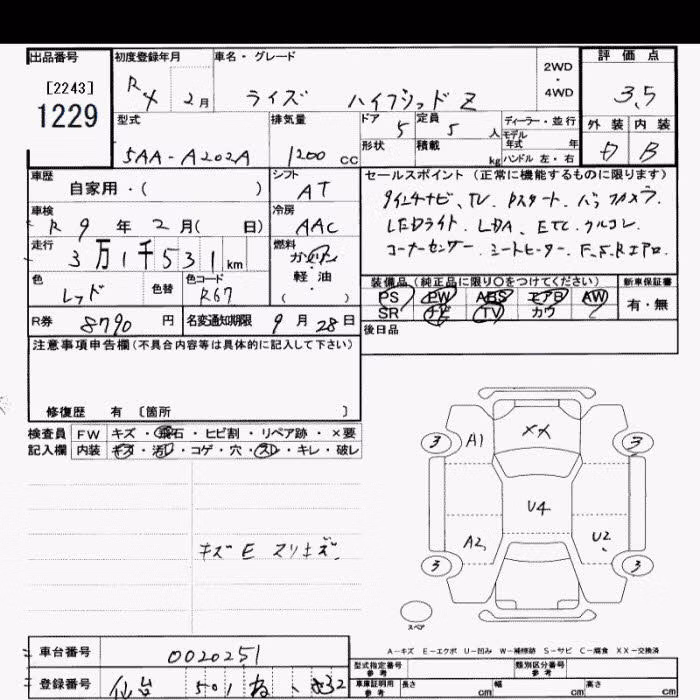 出品番号 初度登録年月 車名・グレード 2WD・4WD 評価点
[2243] R4 2月 ライズ ハイブリッド Z 3.5
1229
型式 排気量 ドア 5 定員 5 人 ディーラー・並行 外装 内装
モデル年式 年
5AA-A202A 1200 cc 形状 積載 kg ハンドル 左・右 D B
車歴 シフト セールスポイント (正常に機能するものに限ります)
自家用・( ) AT
タイエチナビ、TV、Pスタート、バックカメラ、
車検 冷房
R 9 年 2 月( 日) AAC
LEDライト、LDA、ETC、クルコン、
走行 燃料
3万1千531km ガソリン
コーナーセンサー、シートヒーター、F.S.Rエアロ
軽油
( )
色 色替 色コード 装備品 (純正品に限り○をつけてください) 新車保証書
レッド R67 PS PW ABS エアB AW 有・無
SR ナビ TV カワ
R券 8790 円 名変通知期限 9 月 28 日 後日品
注意事項申告欄 (不具合内容等は具体的に記入して下さい)
修復歴 有 [箇所 ]
検査員 FW キズ・飛石・ヒビ割・リペア跡・×要
記入欄 内装 キズ・汚れ・コゲ・穴・スレ・キレ・破レ
3 A1 XX 3
U4
キズE スリキズ
A2 U2
3 3
スペア
A-キズ E-エクボ U-凹み W-補修跡 S-サビ C-腐食 XX-交換済
車台番号 0020251
型式指定番号 参考 類別区分番号 参考
登録番号 仙台 501 ね
車庫証明用 参考 長さ cm 幅 cm 高さ cm